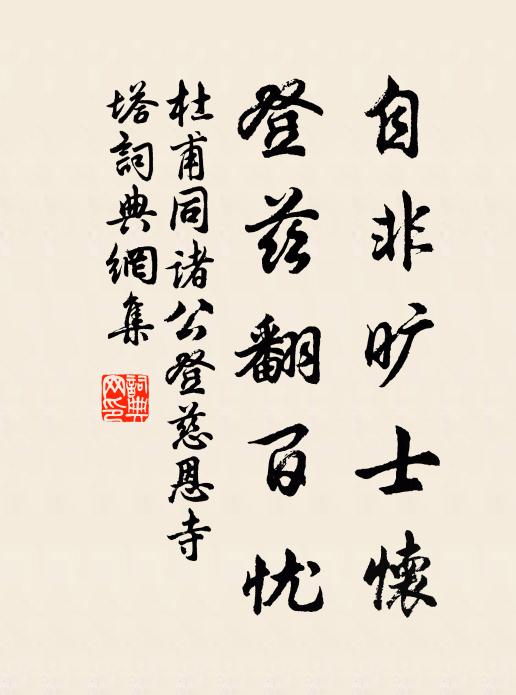 自非旷士懷
登茲翻百忧
杜甫同諸公登慈恩寺
塔詞典網集
詞典網印